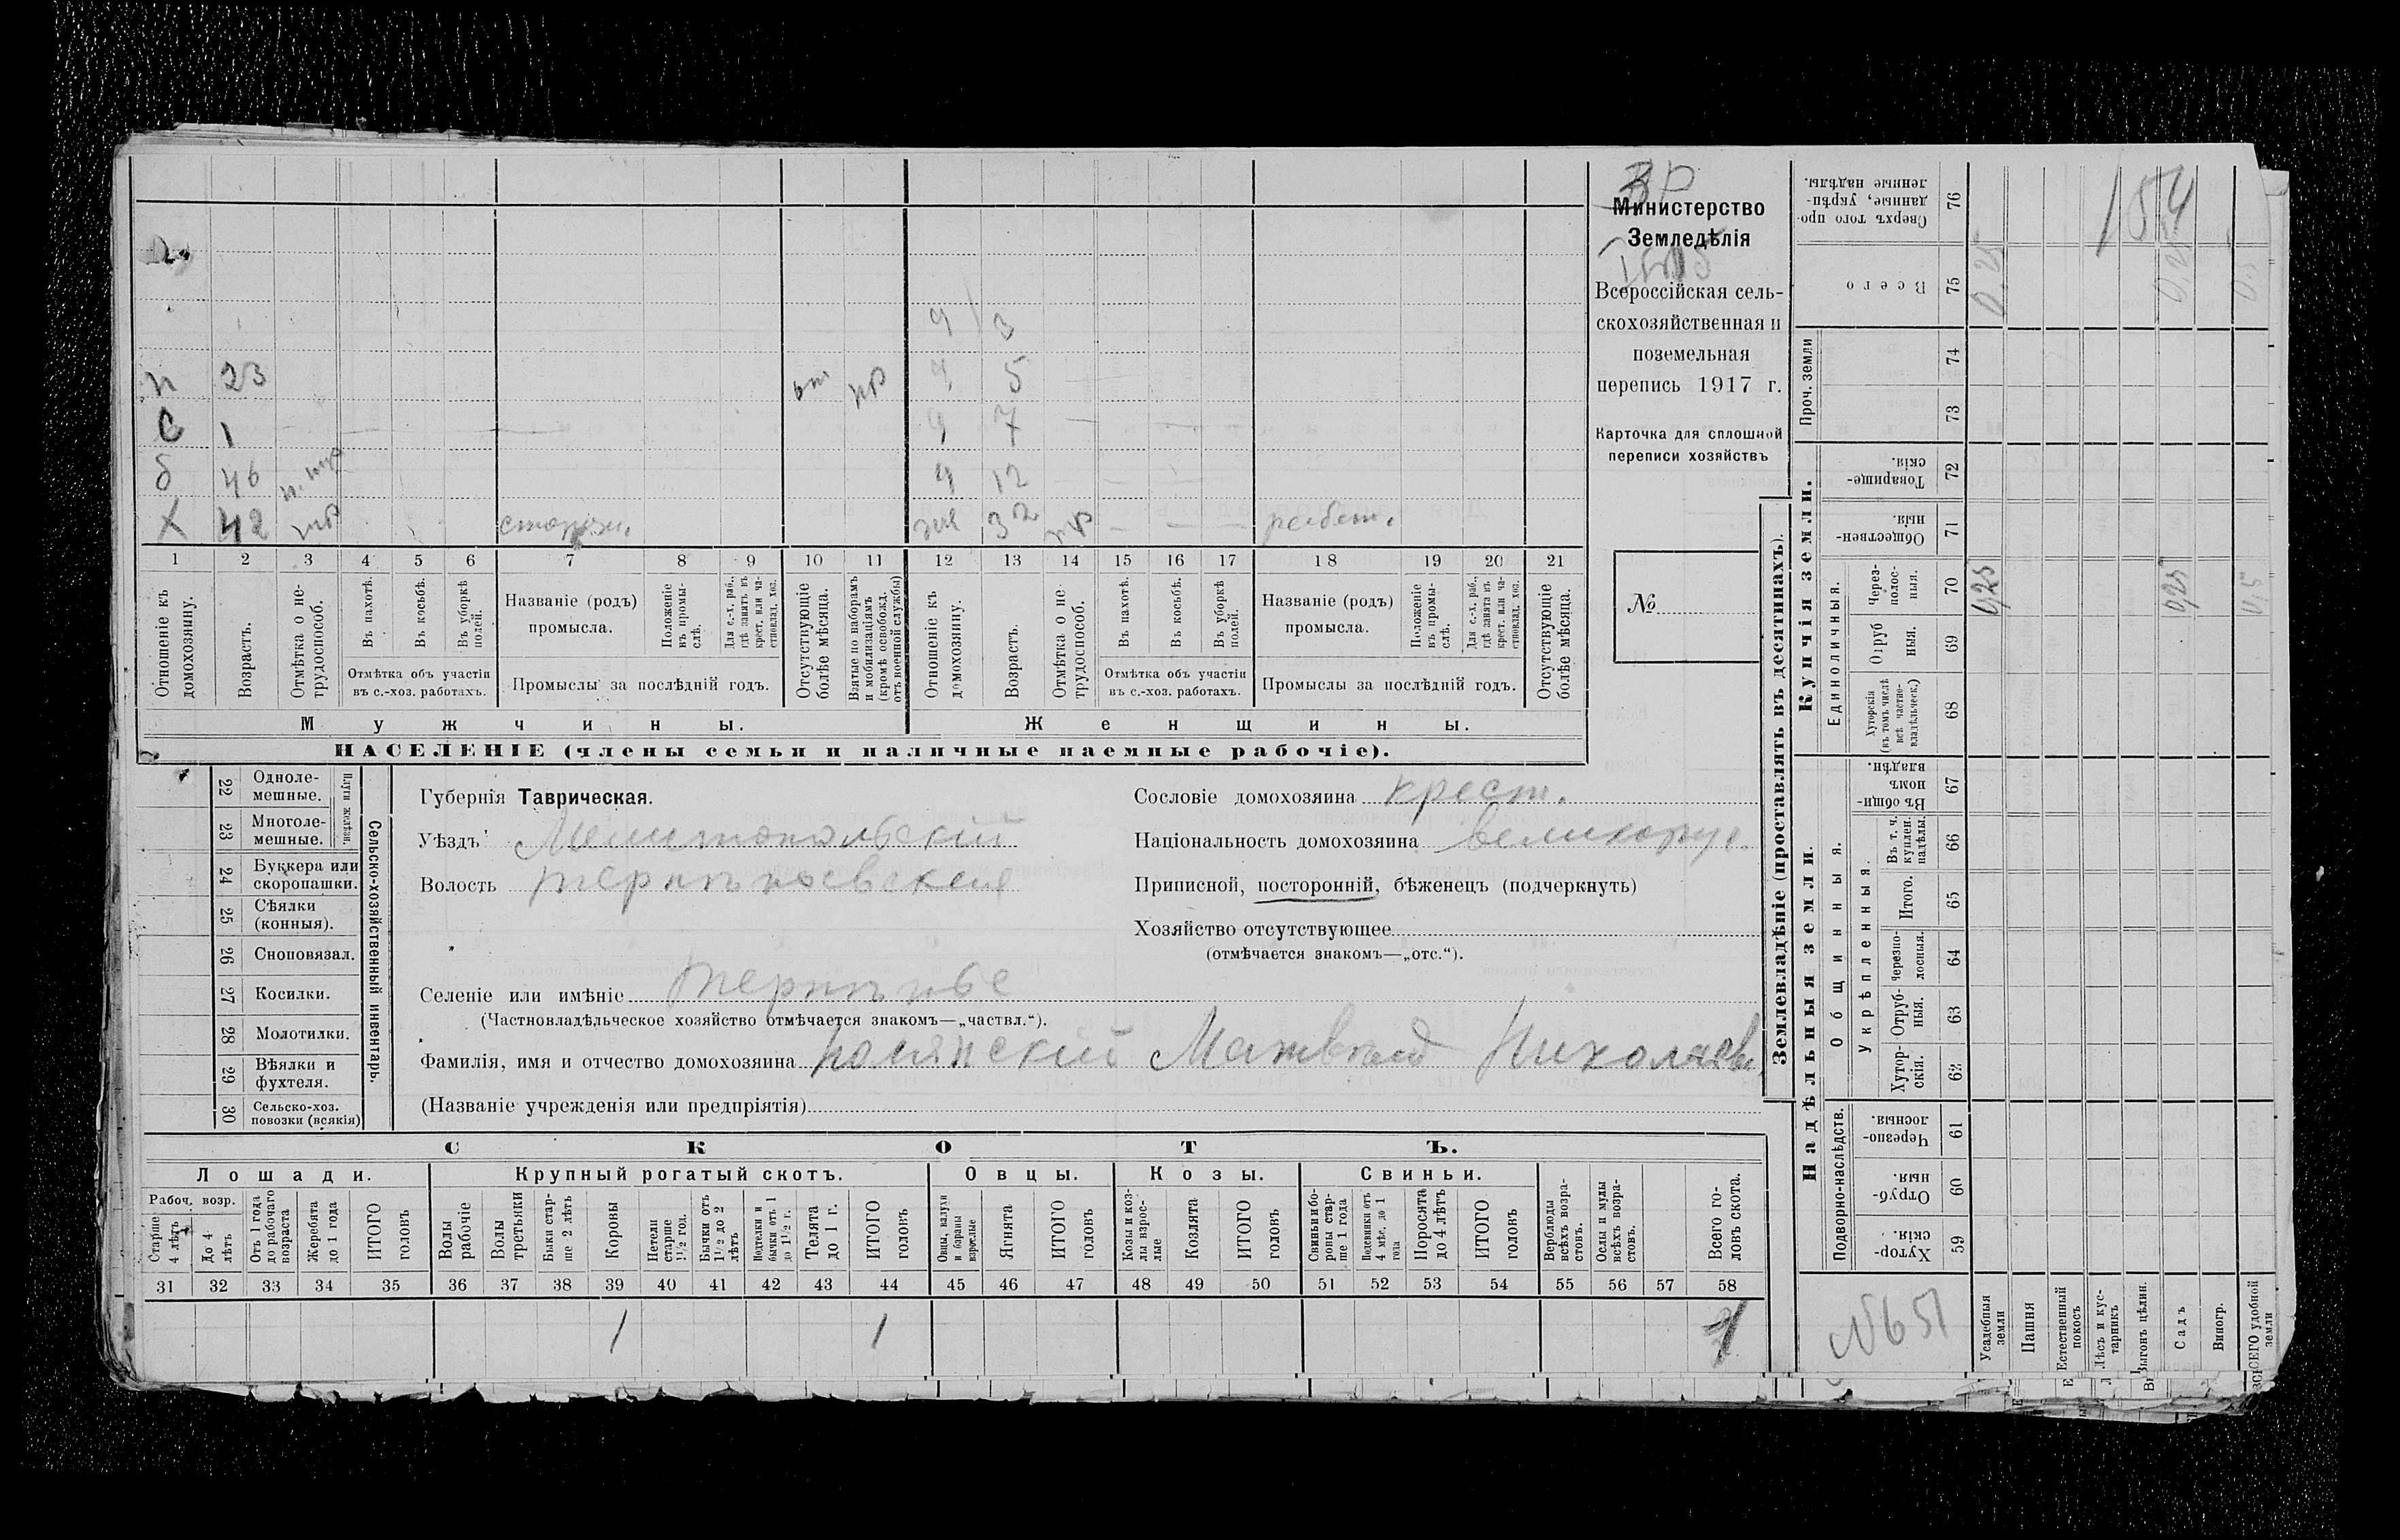 Министерство
Земледѣлія
Всероссійская сель-
скохозяйственная и
поземельная
перепись 1917 г.
Карточка для сплошной
переписи хозяйствъ
№
154
ч 3
п 23 от пр ч 5
С 1 ч 7
б 46 ч 12
Х 42 сторож. 32
1 2 3 4 5 6 7 8 9 10 11 12 13 14 15 16 17 18 19 20 21
Отношеніе къ домохозяину.
Возрастъ.
Отмѣтка о не-трудоспособ.
Въ пахотѣ.
Въ косьбѣ.
Въ уборкѣ полей.
Отмѣтка объ участіи въ с.-хоз. работахъ.
Названіе (родъ) промысла.
Положеніе въ промы-слѣ.
Для с.-х. раб., гдѣ занятъ въ крест. или ча-стновлад. хоз.
Промыслы за послѣдній годъ.
Отсутствующіе болѣе мѣсяца.
Взятые по наборамъ и мобилизаціямъ (кромѣ освобожд. отъ военной службы)
Отношеніе къ домохозяину.
Возрастъ.
Отмѣтка о не-трудоспособ.
Въ пахотѣ.
Въ косьбѣ.
Въ уборкѣ полей.
Отмѣтка объ участіи въ с.-хоз. работахъ.
Названіе (родъ) промысла.
Положеніе въ промы-слѣ.
Для с.-х. раб., гдѣ занята въ крест. или ча-стновлад. хоз.
Промыслы за послѣдній годъ.
Отсутствующіе болѣе мѣсяца.
Мужчины. Женщины.
НАСЕЛЕНІЕ (члены семьи и наличные наемные рабочіе).
22 Одноле-мешные.
23 Многоле-мешные.
Плуги желѣзн.
24 Буккера или скоропашки.
25 Сѣялки (конныя).
26 Сноповязал.
27 Косилки.
28 Молотилки.
29 Вѣялки и фухтеля.
30 Сельско-хоз. повозки (всякія)
Сельско-хозяйственный инвентарь.
Губернія Таврическая.
Уѣздъ Мелитопольскій
Волость Терпѣньевская
Селеніе или имѣніе Терпѣнье
(Частновладѣльческое хозяйство отмѣчается знакомъ—„частвл.“).
Фамилія, имя и отчество домохозяина Матвѣй Николаев.
(Названіе учрежденія или предпріятія)
Сословіе домохозяина крест.
Національность домохозяина великорус.
Приписной, посторонній, бѣженецъ (подчеркнуть)
Хозяйство отсутствующее
(отмѣчается знакомъ—„отс.“).
СКОТЪ.
Лошади. Крупный рогатый скотъ. Овцы. Козы. Свиньи.
Рабоч. возр.
Старше 4 лѣтъ
До 4 лѣтъ
Отъ 1 года до рабочаго возраста
Жеребята до 1 года
ИТОГО головъ
Волы рабочіе
Волы третьяки
Быки стар-ше 2 лѣтъ
Коровы
Нетели старше 1½ год.
Бычки отъ 1½ до 2 лѣтъ
Подтелки и бычки отъ 1 до 1½ г.
Телята до 1 г.
ИТОГО головъ
Овцы, валухи и бараны взрослые
Ягнята
ИТОГО головъ
Козы и коз-лы взрос-лые
Козлята
ИТОГО головъ
Свиньи и бо-ровы стар-ше 1 года
Подсвинки отъ 4 мѣс. до 1 года
Поросята до 4 лѣтъ
ИТОГО головъ
Верблюды всѣхъ возра-стовъ.
Ослы и мулы всѣхъ возра-стовъ.
Всего го-ловъ скота.
31 32 33 34 35 36 37 38 39 40 41 42 43 44 45 46 47 48 49 50 51 52 53 54 55 56 57 58
1 1 1
Землевладѣніе (проставлять въ десятинахъ).
Купчія земли.
Надѣльныя земли.
Сверхъ того про-данные, укрѣп-ленные надѣлы. 76
Всего 75 0,25
Проч. земли 74 73
Товарище-скія. 72
Обществен-ныя. 71
Единоличныя.
Через-полос-ныя. 70 0,25 0,25
Отруб ныя. 69
Хуторскія (въ томъ числѣ всѣ частно-владѣльческ.) 68
Въ общи-номъ владѣн. 67
Общинныя.
Укрѣпленныя.
Въ т. ч. куплен. надѣлы. 66
Итого. 65
Черезпо-лосныя. 64
Отруб-ныя. 63
Хутор-скія. 62
Подворно-наслѣдств.
Черезпо-лосныя. 61
Отруб-ныя. 60
Хутор-скія. 59
№651
Усадебныя земли
Пашня
Естественный покосъ
Лѣсъ и кус-тарникъ
Выгонъ цѣлин.
Садъ
Виногр.
ВСЕГО удобной земли